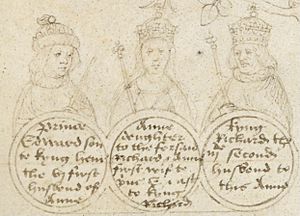 Prince
Edward son
to kyng henr
the vj first
husbond of
Anne
Anne
doughter
to the forsaid
Richard &
first wif to
to kyng
Richard
kyng
Richard the
iij second
husbond to
this Anne